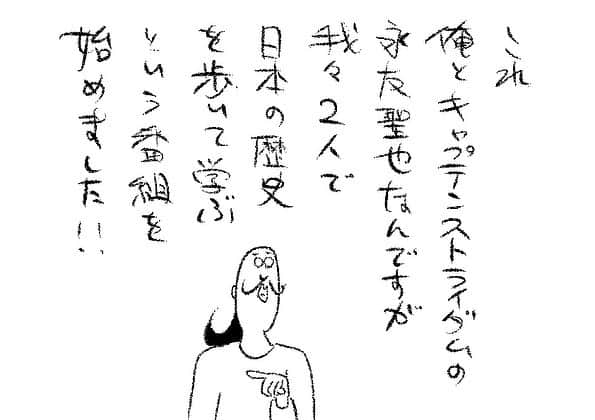 これ
俺とキャプテンストライダムの
永友聖也なんですが
我々2人で
日本の歴史
を歩いて学ぶ
という番組を
始めました!!